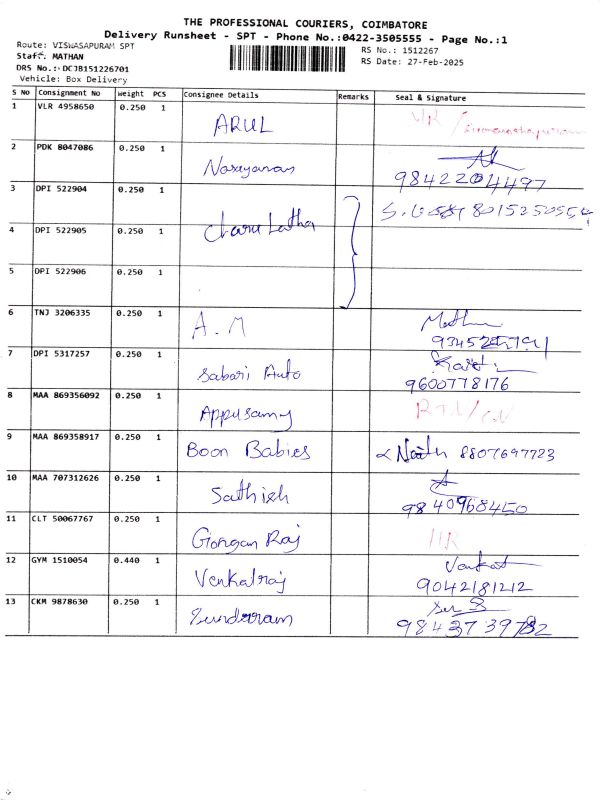 THE PROFESSIONAL COURIERS, COIMBATORE
Delivery Runsheet - SPT - Phone No.:0422-3505555 - Page No.:1
Route: VISWASAPURAM SPT
RS No.: 1512267
Staff: MATHAN
RS Date: 27-Feb-2025
DRS No.: DCJB151226701
Vehicle: Box Delivery
S No Consignment No Weight PCS Consignee Details Remarks Seal & Signature
1 VLR 4958650 0.250 1 ARUL
2 PDK 8047086 0.250 1 Narayanan 9842204497
3 DPI 522904 0.250 1 Charu Latha
4 DPI 522905 0.250 1
5 DPI 522906 0.250 1
6 TNJ 3206335 0.250 1 A.M
7 DPI 5317257 0.250 1 Sabari Auto 9600778176
8 MAA 869356092 0.250 1 Appusamy
9 MAA 869358917 0.250 1 Boon Babies 8807697723
10 MAA 707312626 0.250 1 Sathish 9840968450
11 CLT 50067767 0.250 1 Raj
12 GYM 1510054 0.440 1 Venkatraj Venkat 9042181212
13 CKM 9878630 0.250 1 Sunderram